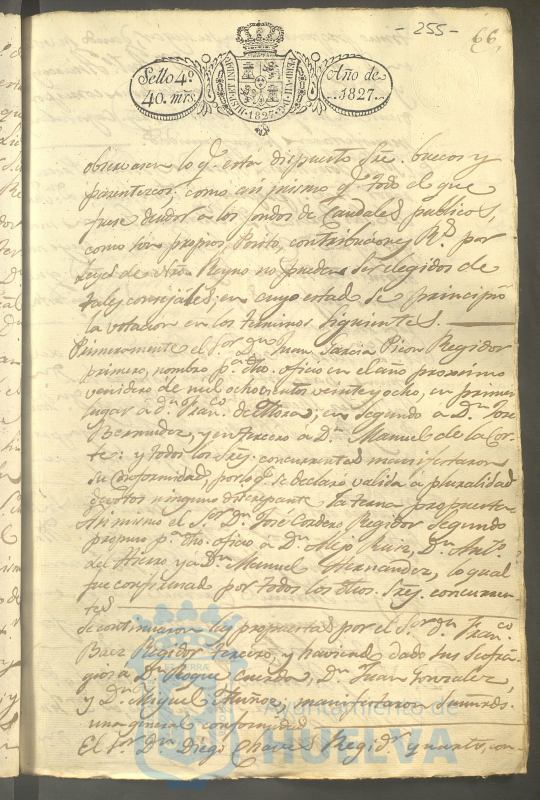 - 255 -
66
Sello 4º
40. mrs.
HISP. ET IND. R.
FERD. VII. D. G.
1827
Año de
1827.
observasen lo q.e esta dispuesto Sre. huecos y
parentezcos; como asi mismo q.e todo el que
fuese deudor a los fondos de Caudales publicos,
como son propios, Posito, contribuciones R.s por
Leyes de Nro. Reyno no pueden Ser elegidos de
tales consejales; en cuyo estad. se principió
la votacion en los terminos siguientes.
Primeramente el S.or d.n Juan Garcia Picon Regidor
primero, nombro p.a dho. oficio en el año proximo
venidero de mil ochocientos veinte y ocho, en primer
lugar á d.n Fran.co de Mora; en segundo a D.n José
Bermudez, y en tercero á D.n Manuel de la Cor-
te: y todos los Srs. concurrentes manifestaron
su conformidad, por lo q.e se declaró valida a pluralidad
de votos ninguno discrepante la terna propuesta.
Asi mismo el S.or D.n José Cordero Regidor Segundo
propuso p.a dho. oficio á D.n Alejo Ruiz, D.n Ant.o
del Hierro y a D.n Manuel Hernandez, lo qual
fue confirmad. por todos los dhos. Srs. concurren-
tes
Se continuaron las propuestas por el Sor. d.n Fran.co
Baez Regidor tercero, y haviend. dado sus sufra-
gios á D.n Roque Cuerda, D.n Juan Gonzalez,
y D.n Miguel Muñoz, manifestaron
una general conformidad
El S.or d.n Diego Chaves Regid.r quarto, con-
Ayuntamiento de
HUELVA